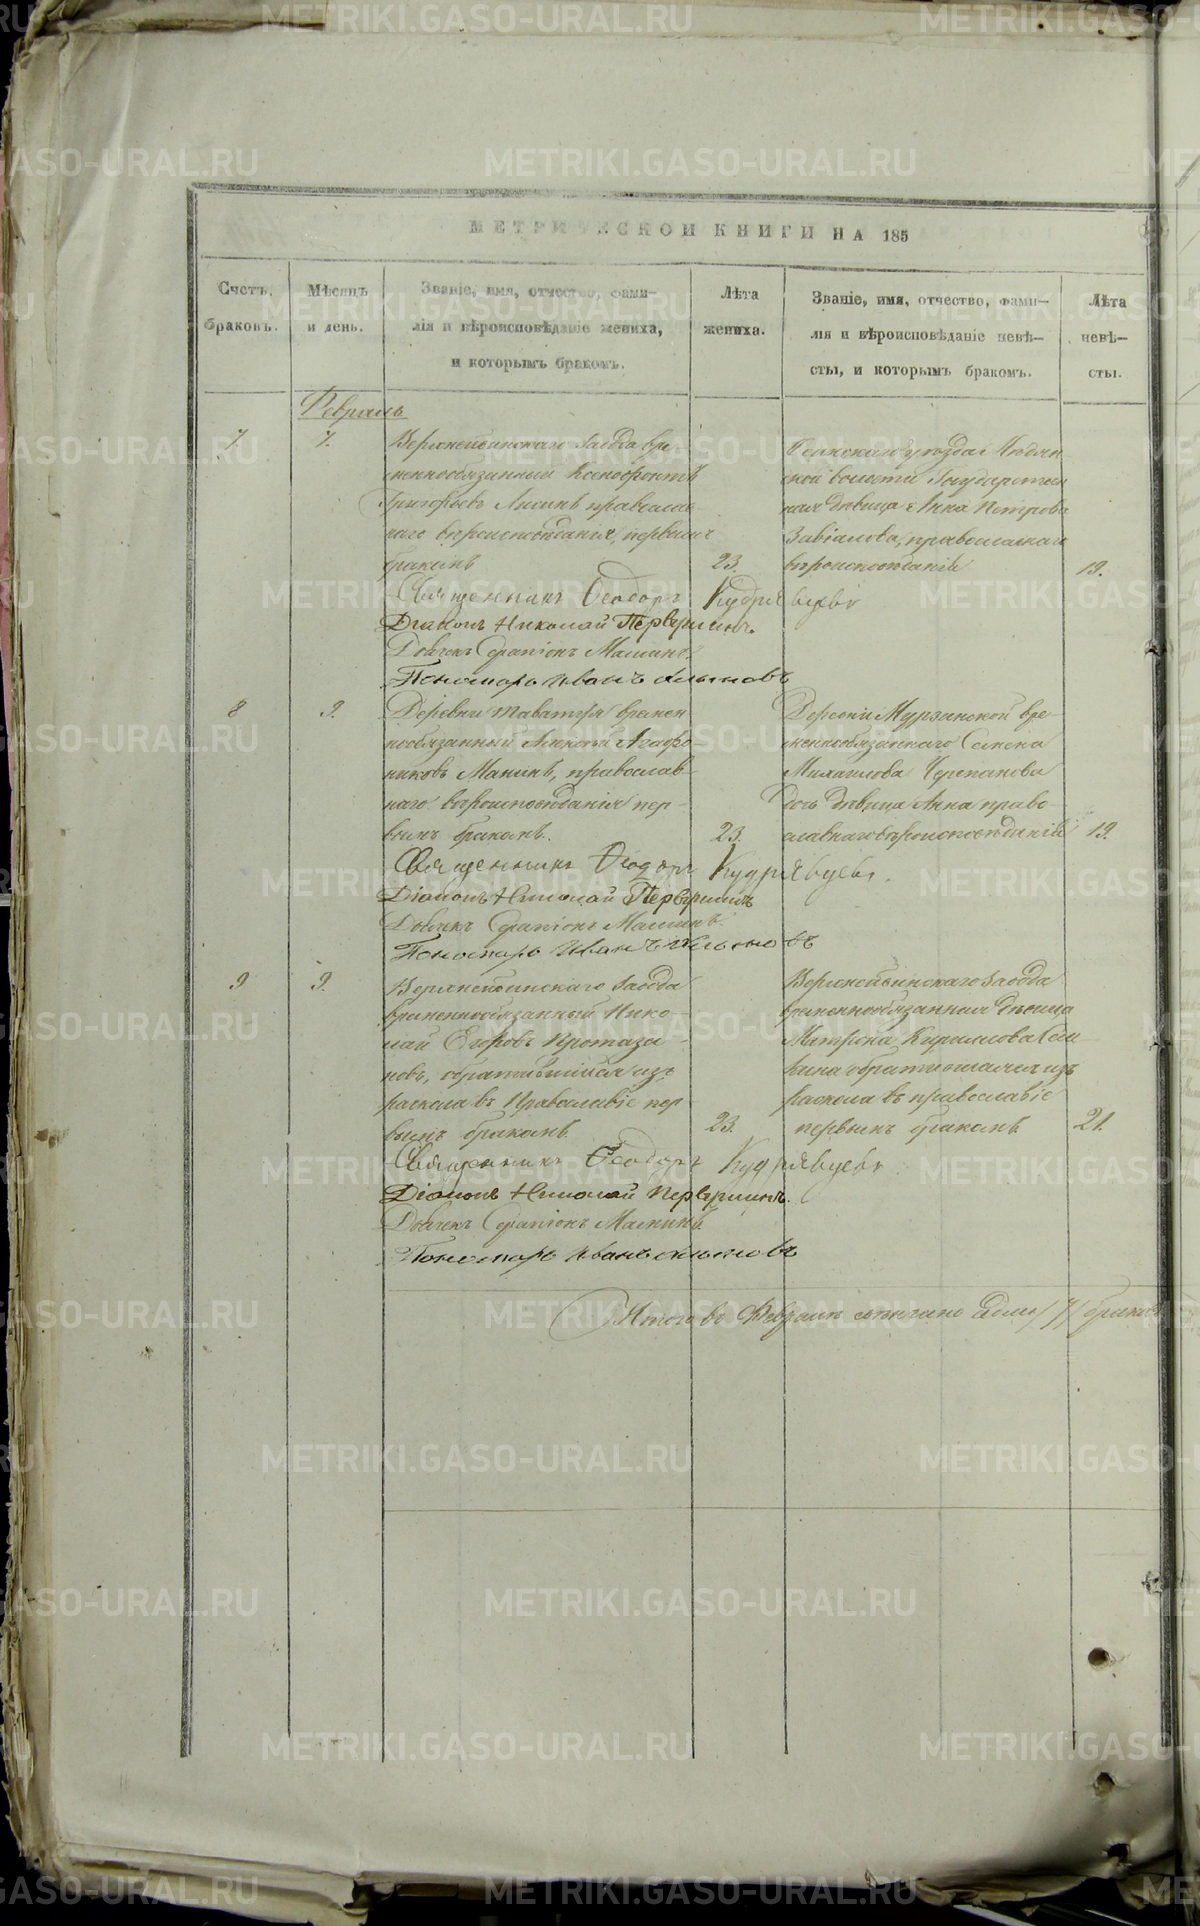 МЕТРИЧЕСКОЙ КНИГИ НА 185
Счетъ браковъ.
Мѣсяцъ и день.
Званіе, имя, отчество, фами-
лія и вѣроисповѣданіе жениха,
и которымъ бракомъ.
Лѣта жениха.
Званіе, имя, отчество, фами-
лія и вѣроисповѣданіе невѣ-
сты, и которымъ бракомъ.
Лѣта невѣ-
сты.
Февраль
7 7.
Верхнейвинскаго завода вре
меннообязанный Ксенофонтъ
Григорьевъ православ
наго вѣроисповѣданія, первымъ
бракомъ
23.
уѣзда
ской волости Государствен
ная дѣвица Анна Петрова
Завіалова, православнаго
вѣроисповѣданія
19.
Священникъ Ѳеодоръ Кудрявцевъ
Діаконъ Николай Первушинъ.
Дьячекъ Серапіонъ
Пономарь Иванъ
8 9.
Деревни Таватуя времен
нообязанный Агафо-
никовъ Манинъ, православ
наго вѣроисповѣданія пер-
вымъ бракомъ.
23.
Деревни Мурзинской вре-
меннообязаннаго Семена
Михаилова Черепанова
дочь дѣвица Анна право-
славнаго вѣроисповѣданія
19.
Священникъ Ѳеодоръ Кудрявцевъ.
Діаконъ Николай Первушинъ
Дьячекъ Серапіонъ
Пономарь Иванъ
9 9.
Верхнейвинскаго завода
временнообязанный Нико-
лай Егоровъ Протаза-
новъ, обратившійся изъ
раскола въ Православіе пер
вымъ бракомъ.
23.
Верхнейвинскаго завода
временнообязанная дѣвица
Матрона Кирилова
обратившаяся изъ
раскола въ православіе
первымъ бракомъ
21.
Священникъ Ѳеодоръ Кудрявцевъ.
Діаконъ Николай Первушинъ.
Дьячекъ Серапіонъ
Пономарь Иванъ
Итого въ Февралѣ /7/ браковъ
METRIKI.GASO-URAL.RU